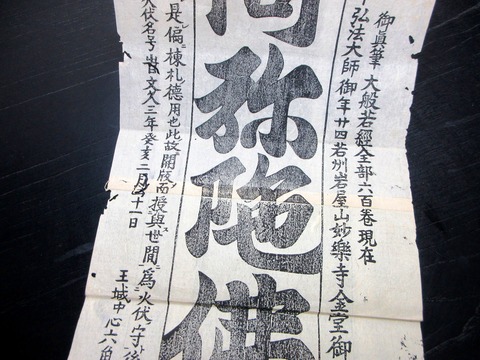 御眞筆 大般若經全部六百巻現在
弘法大師 御年廿四若州岩屋山妙樂寺金堂御
弥陀佛
是偏棟札德用也此故開版而授與世間爲火伏守後
火伏名号旹文久三年癸亥二月十一日
王城中心六角